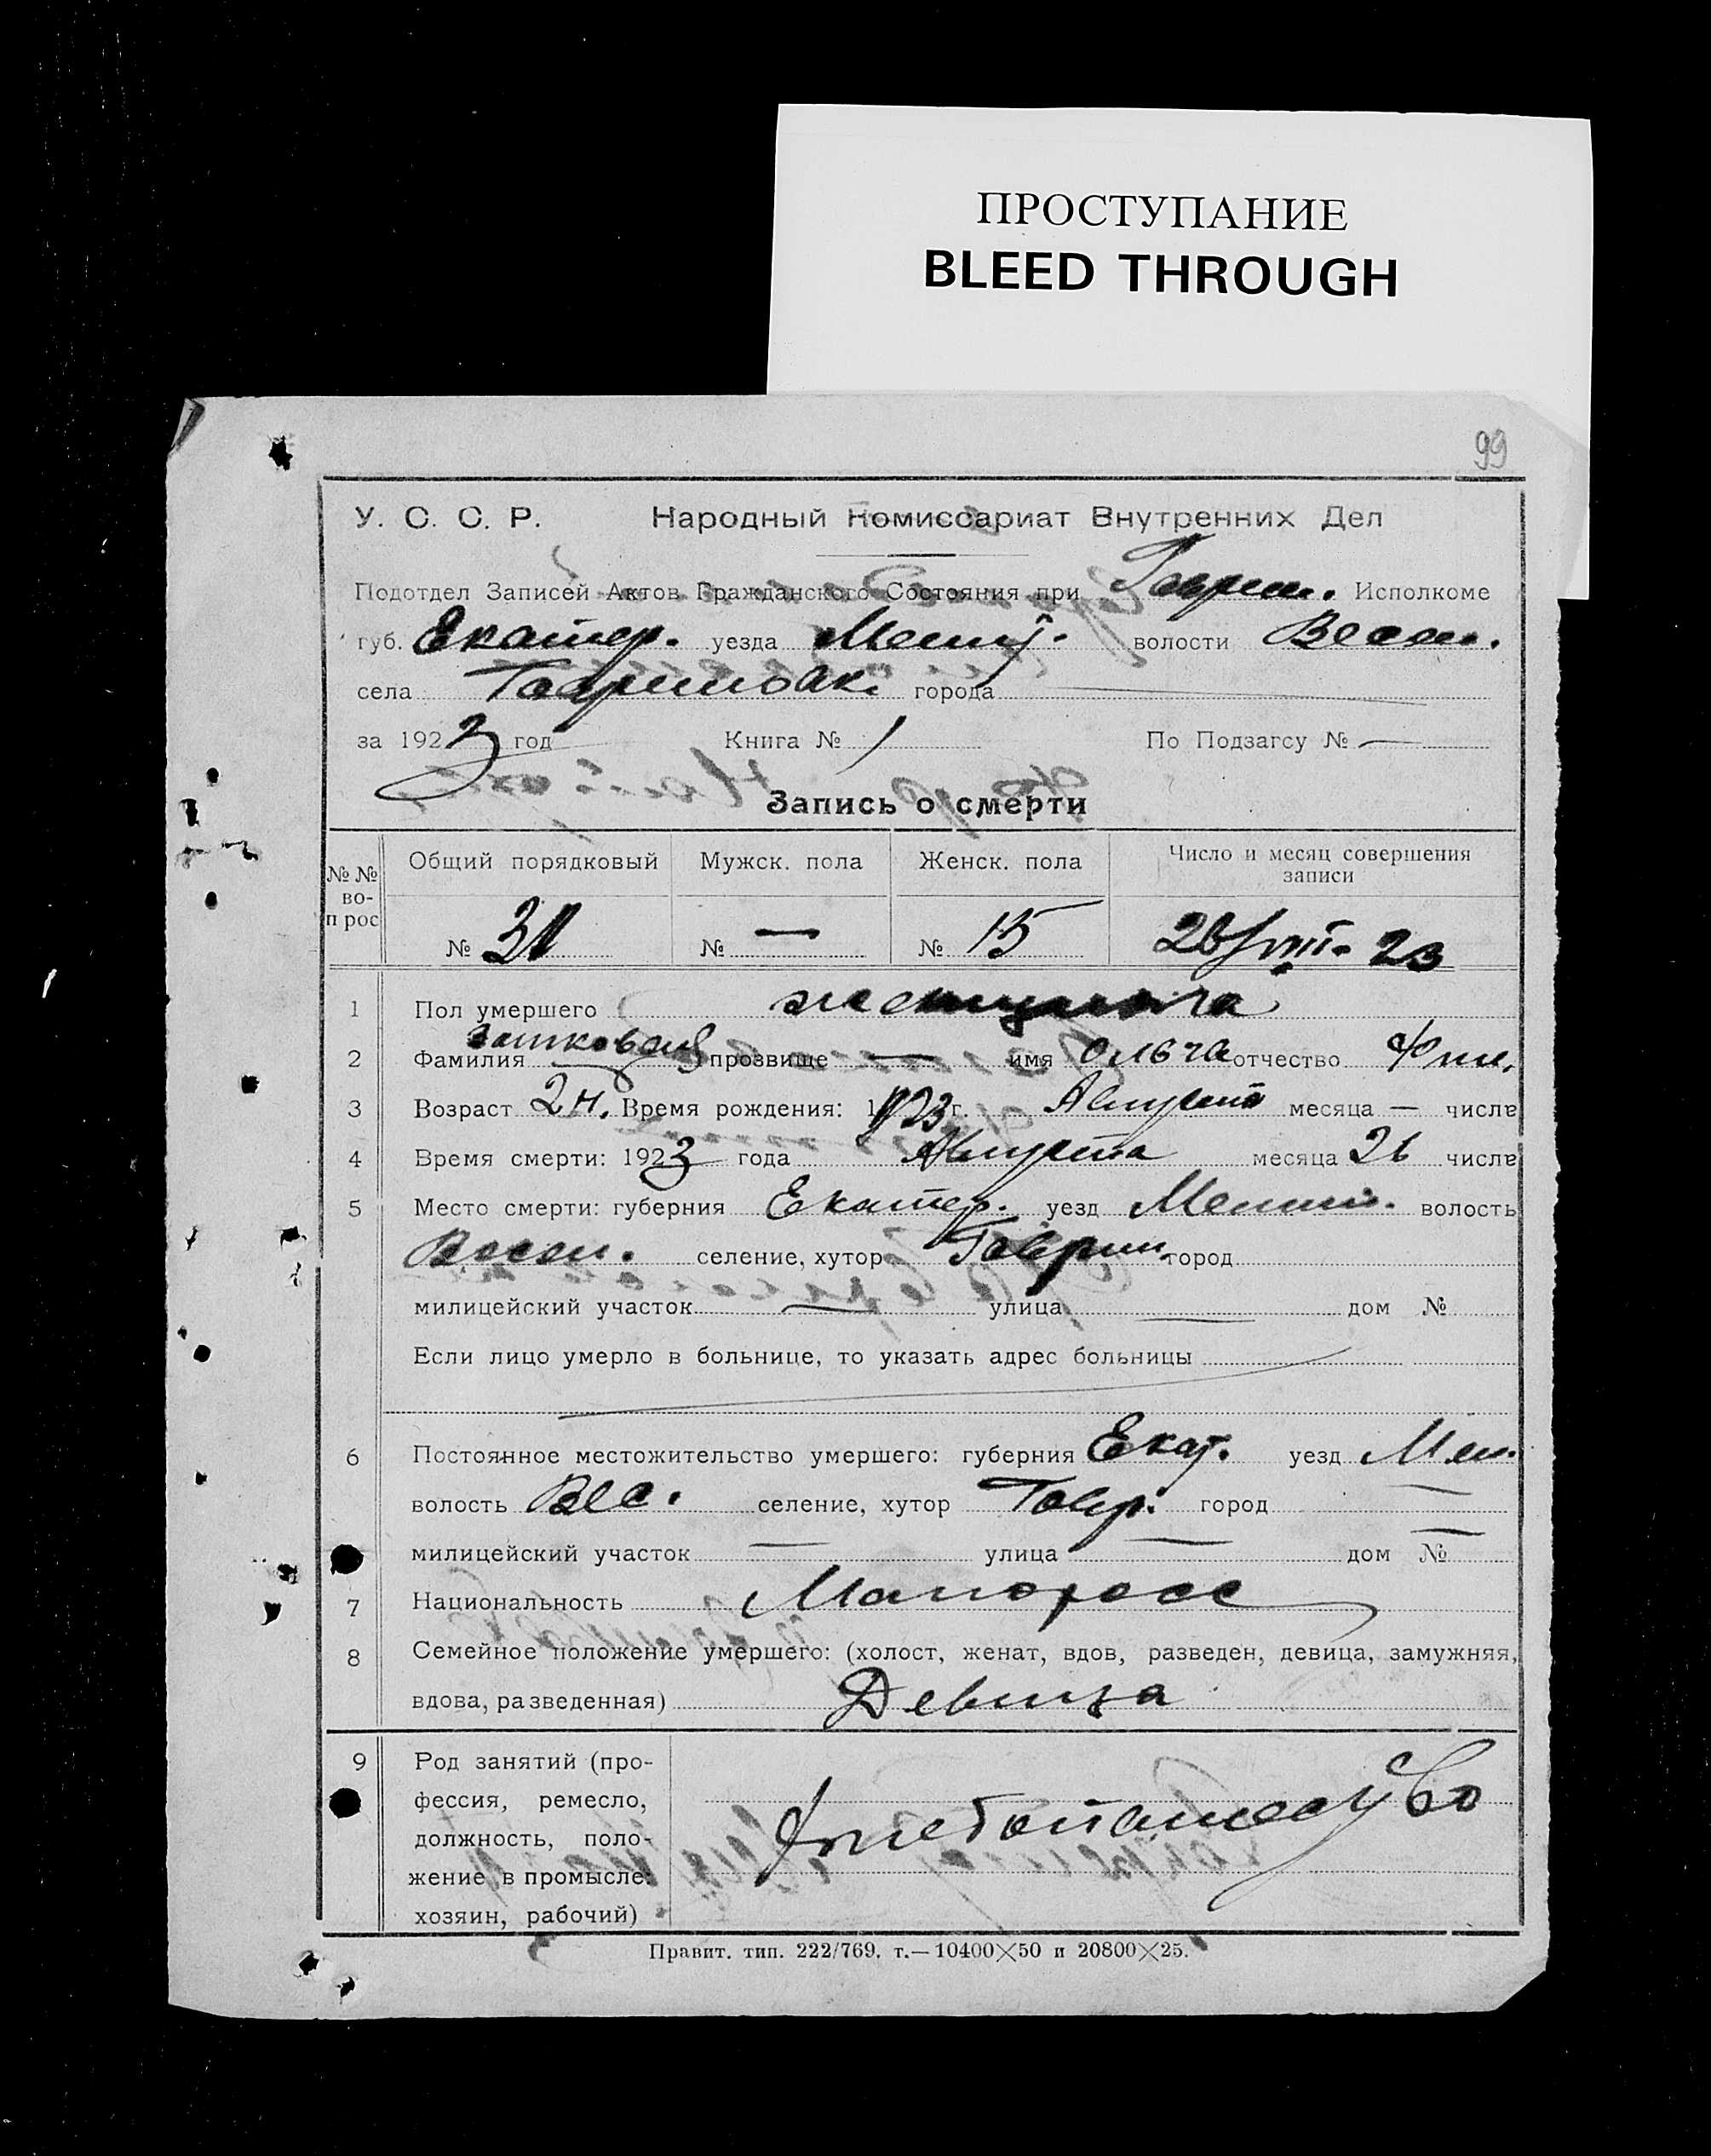 ПРОСТУПАНИЕ
BLEED THROUGH
99
У. С. С. Р. Народный Комиссариат Внутренних Дел
Подотдел Записей Актов Гражданского Состояния при Гаврил. Исполкоме
губ. Екатер. уезда волости Весел.
села города
за 1923 год Книга № 1 По Подзагсу № —
Запись о смерти
№№ во-прос Общий порядковый Мужск. пола Женск. пола Число и месяц совершения записи
№ 31 № — № 15 26/VIII. 23
1 Пол умершего женщина
2 Фамилия прозвище — имя Ольга отчество
3 Возраст 2 н. Время рождения: 1923 г. Августа месяца — числа
4 Время смерти: 1923 года Августа месяца 26 числа
5 Место смерти: губерния Екатер. уезд волость
Весел. селение, хутор Гаврил. город
милицейский участок — улица — дом №
Если лицо умерло в больнице, то указать адрес больницы
6 Постоянное местожительство умершего: губерния Екат. уезд Мел.
волость Вес. селение, хутор Гавр. город —
милицейский участок — улица — дом № —
7 Национальность Малоросс
8 Семейное положение умершего: (холост, женат, вдов, разведен, девица, замужняя,
вдова, разведенная) Девица
9 Род занятий (про-
фессия, ремесло,
должность, поло-
жение в промысле:
хозяин, рабочий)
Хлебопашество
Правит. тип. 222/769. т.—10400×50 и 20800×25.